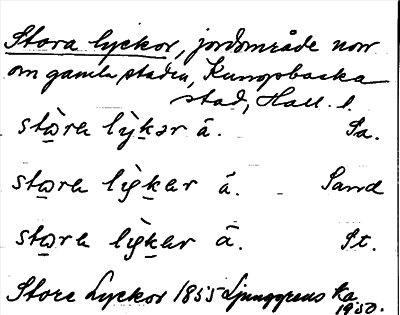 Stora lyckor, jordområde norr
om gamla staden, Kungsbacka
stad, Hall. l.
stò̱ra lỳḵər á. Sa.
sto̱ra lỳḵer á. Sand
sto̱ra lỳḵer á. St.
Store Lyckor 1855 Ljunggrens ka
1950.